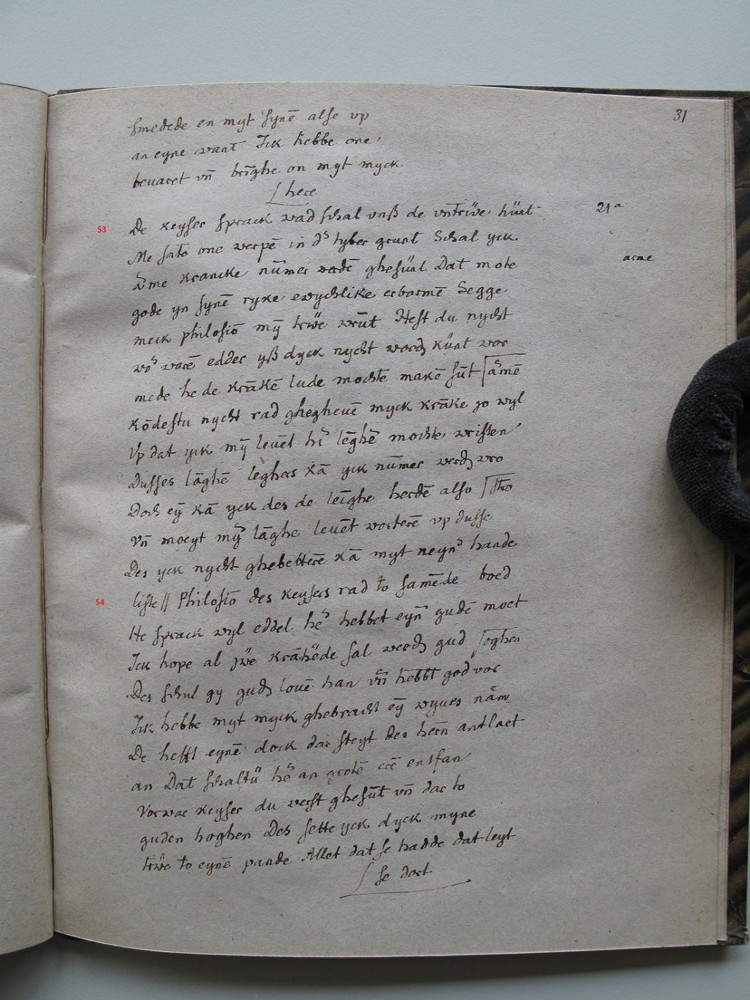 31
smedede en myt synē alse vp
an eyne want Ick hebbe one
bewaret vn̄ brīghe on myt myck
here
53 De keyser sprack wad schal vnß de vntrūwe hūnt
21a
Me sato one werpē in der tyber grunt Schal yck
arme krancke nūmer werdē ghesūnt Dat mote
arme
gode yn synē ryke ewychlike erbarmē Segge
meck philosio mȳ trūwe vrūt Hefst du nycht
war warē edder yß dyck nycht wordē kūnt wor
mede he de krākē lude mochte makē sūt āmē
Kōdestu nycht rad gheghevē myck krāke so wyl
Vp dat yck mȳ levēt hir lēghē mochte vristen
dusses lāghē leghers kā yck nūmer werdē vro
Doch eȳ kā yck des de leīghe herdē also
Vn̄ moeyt mȳ lāghe levēt vorterē vp dusse
Des yck nycht ghebetterē kā myt neyner hande
54 liste // Philosio des keysers rad to samēde boed
He sprack wyl eddel here hebbet eynē gudē moet
Ick hope al jūwe krākhēde sal werdē gud
Des schul gy gudē lovē han vn̄ hebbt god vor oghen
Ik hebbe myt myck ghebracht eȳ wyves nām
De hefft eynē dock dar steyt des herē antlaet
an Dat schaltu here an grotē erē entfan
Vorwar keyser du werst ghesūt vn̄ dar to
guden hoghen Des sette yck dyck myne
trūwe to eynē pande Allet dat se hadde dat leyt
se dort